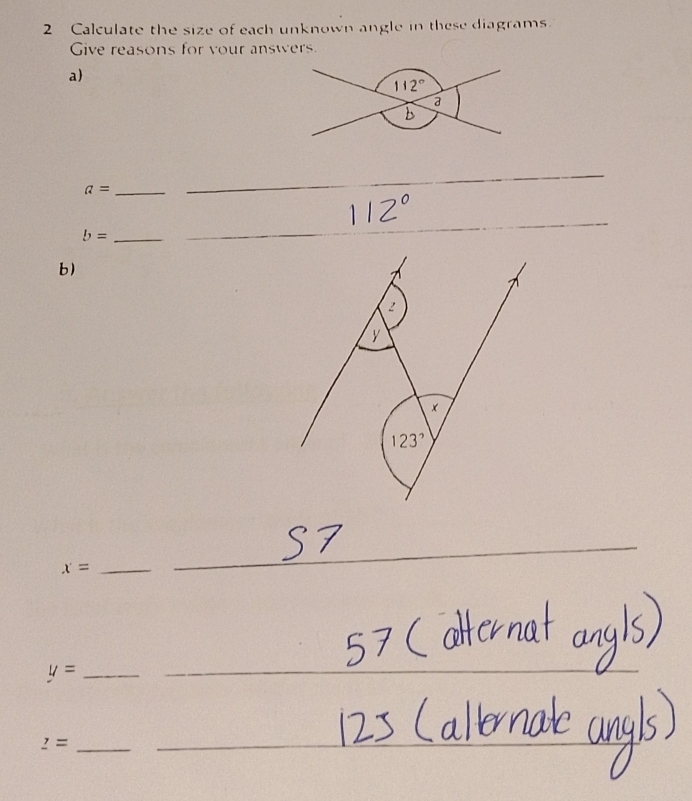 2 Calculate the size of each unknown angle in these diagrams.
Give reasons for your answers.
a)
112°
a
b
a =
112°
b =
b)
z
y
x
123°
57
x =
57 (alternat angls)
y =
123 (alternate angls)
z =